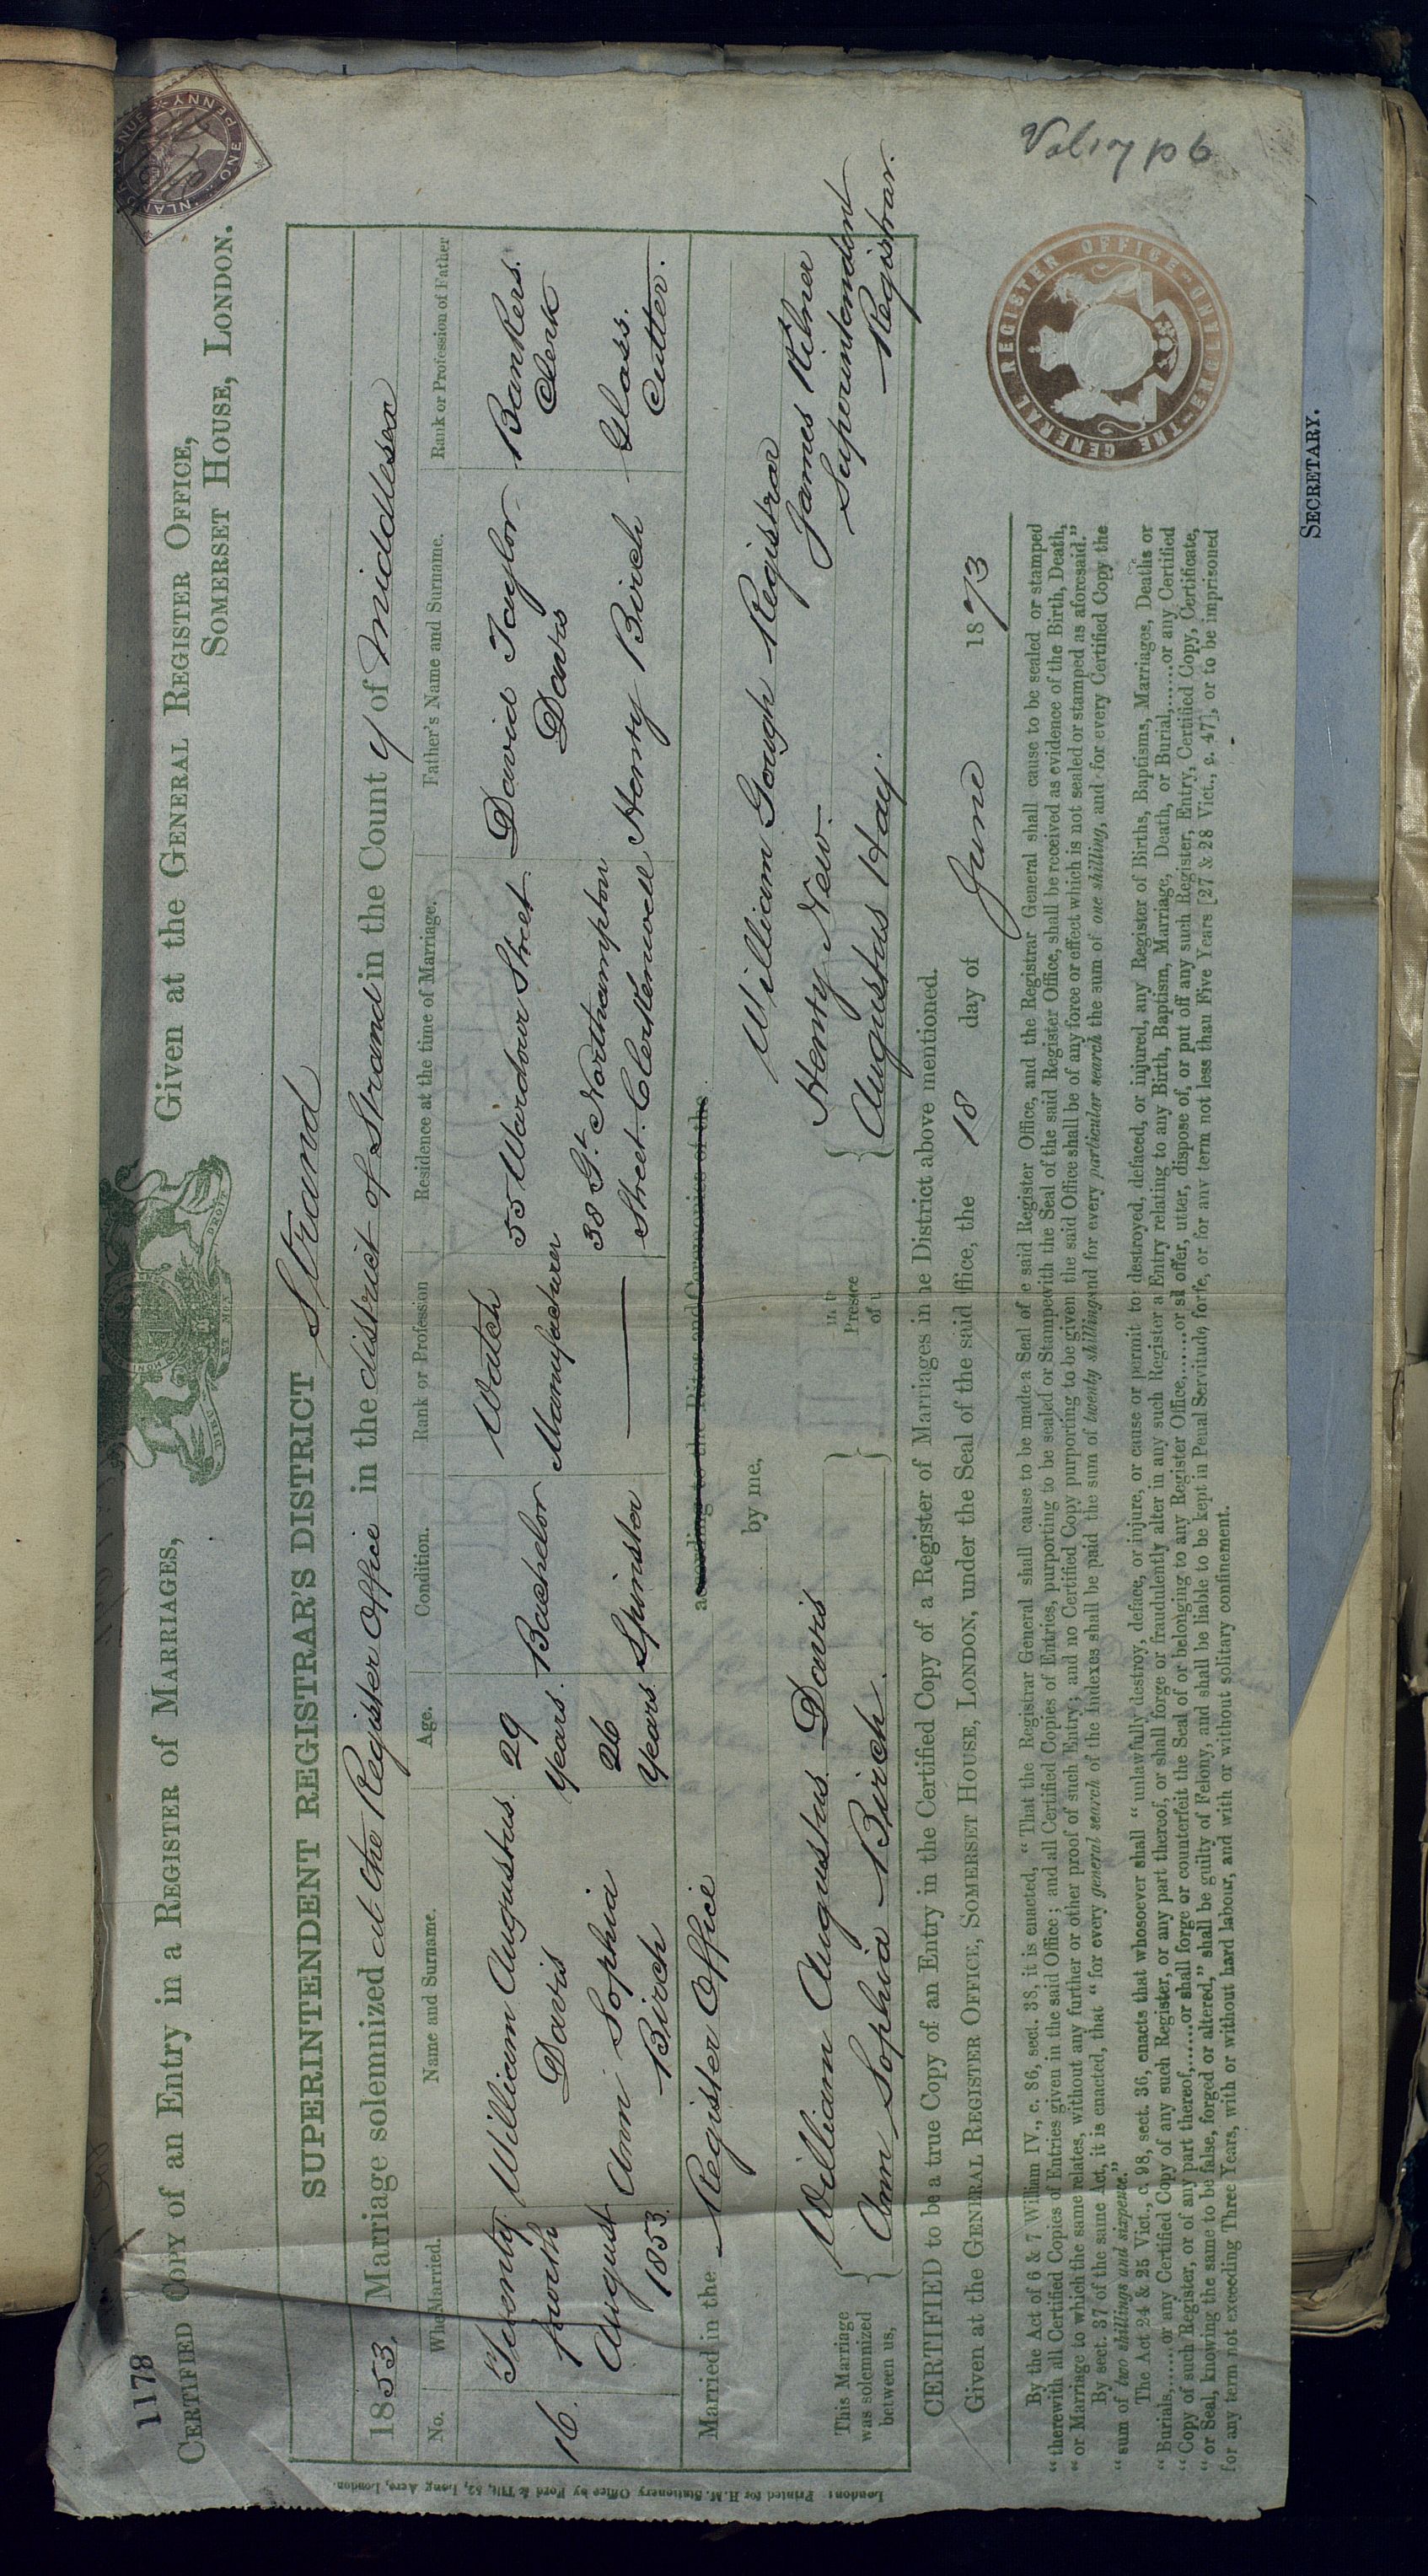 1178
CERTIFIED COPY of an Entry in a REGISTER of MARRIAGES,
Given at the GENERAL REGISTER OFFICE,
SOMERSET HOUSE, LONDON.
SUPERINTENDENT REGISTRAR'S DISTRICT Strand
1853. Marriage solemnized at the Register Office in the district of Strand in the County of Middlesex
No. When Married. Name and Surname. Age. Condition. Rank or Profession Residence at the time of Marriage. Father's Name and Surname. Rank or Profession of Father
16. Twenty fourth August 1853. William Augustus Davis 29 Years. Bachelor Watch Manufacturer 55 Wardour Street David Taylor Davis Bankers. Clerk
Ann Sophia Birch 26 Years. Spinster — 38 Gt. Northampton Street. Clerkenwell Henry Birch Glass. Cutter.
Married in the Register Office according to the Rites and Ceremonies of the
by me, William Gough Registrar
This Marriage was solemnized between us, William Augustus Davis Ann Sophia Birch. In the Presence of us Henry New. Augustus Hay. James Kilner Superintendent Registrar.
CERTIFIED to be a true Copy of an Entry in the Certified Copy of a Register of Marriages in the District above mentioned.
Given at the GENERAL REGISTER OFFICE, SOMERSET HOUSE, LONDON, under the Seal of the said Office, the 18 day of June 1873
By the Act of 6 & 7 William IV., c. 86, sect. 38, it is enacted, "That the Registrar General shall cause to be made a Seal of e said Register Office, and the Registrar General shall cause to be sealed or stamped
"therewith all Certified Copies of Entries given in the said Office; and all Certified Copies of Entries, purporting to be sealed or Stampewith the Seal of the said Register Office, shall be received as evidence of the Birth, Death,
"or Marriage to which the same relates, without any further or other proof of such Entry; and no Certified Copy purporting to be given the said Office shall be of any force or effect which is not sealed or stamped as aforesaid."
By sect. 37 of the same Act, it is enacted, that "for every general search of the indexes shall be paid the sum of twenty shillingand for every particular search the sum of one shilling, and for every Certified Copy the
"sum of two shillings and sixpence."
The Act 24 & 25 Vict., c. 98, sect. 36, enacts that whosoever shall "unlawfully destroy, deface, or injure, or cause or permit to destroyed, defaced, or injured, any Register of Births, Baptisms, Marriages, Deaths or
"Burials,...... or any Certified Copy of any such Register, or any part thereof, or shall forge or fraudulently alter in any such Register a Entry relating to any Birth, Baptism, Marriage, Death, or Burial,......or any Certified
"Copy of such Register, or of any part thereof,......or shall forge or counterfeit the Seal of or belonging to any Register Office,......or sll offer, utter, dispose of, or put off any such Register, Entry, Certified Copy, Certificate,
"or Seal, knowing the same to be false, forged or altered," shall be guilty of Felony, and shall be liable to be kept in Penal Servitude, for fe, or for any term not less than Five Years [27 & 28 Vict., c. 47], or to be imprisoned
for any term not exceeding Three Years, with or without hard labour, and with or without solitary confinement.
London: Printed for H.M. Stationery Office by Ford & Tilt, 52, Long Acre, London.
THE GENERAL REGISTER OFFICE ENGLAND
INLAND REVENUE ONE PENNY
DIEU ET MON DROIT
Vol 17 p 6
SECRETARY.